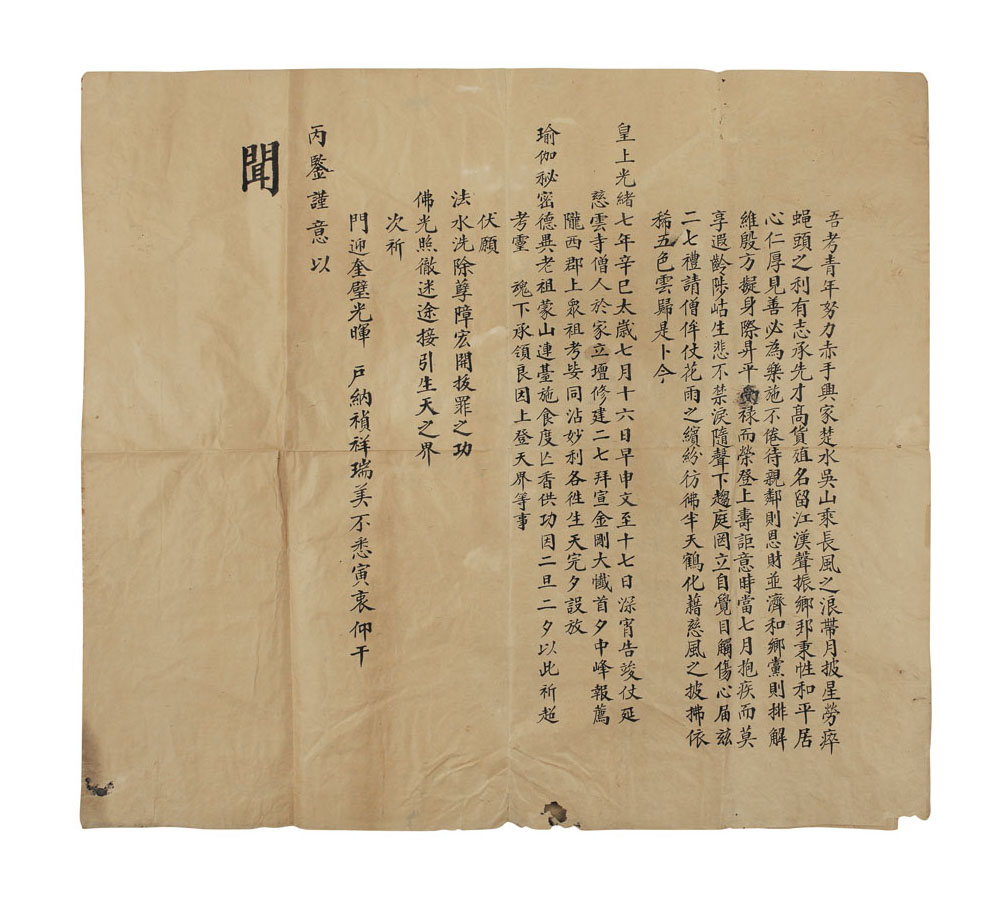 吾考青年努力赤手興家楚水吳山乘長風之浪帶月披星勞瘁
蝿頭之利有志承先才高貨殖名留江漢聲振鄉邦秉性和平居
心仁厚見善必為樂施不倦待親鄰則恩財並濟和鄉黨則排解
維殷方擬身際昇平 祿而榮登上壽詎意時當七月抱疾而莫
享遐齡陟岵生悲不禁淚隨聲下趨庭罔立自覺目觸傷心届兹
二七禮請僧侔仗花雨之繽紛彷佛半天鶴化藉慈風之披拂依
稀五色雲歸是卜今
皇上光緒七年辛巳太歲七月十六日早申文至十七日深宵告竣仗延
慈雲寺僧人於家立壇修建二七拜宣金剛大懺首夕中峰報薦
隴西郡上衆祖考妣同沾妙利各徃生天完夕設放
瑜伽秘密德異老祖蒙山連臺施食度亡香供功因二旦二夕以此祈超
考靈 魂下承領良因上登天界等事
伏願
法水洗除孽障宏開拔罪之功
佛光照徹迷途接引生天之界
次祈
門迎奎壁光暉 戶納禎祥瑞美不悉寅衷仰干
丙鑒謹意以
聞